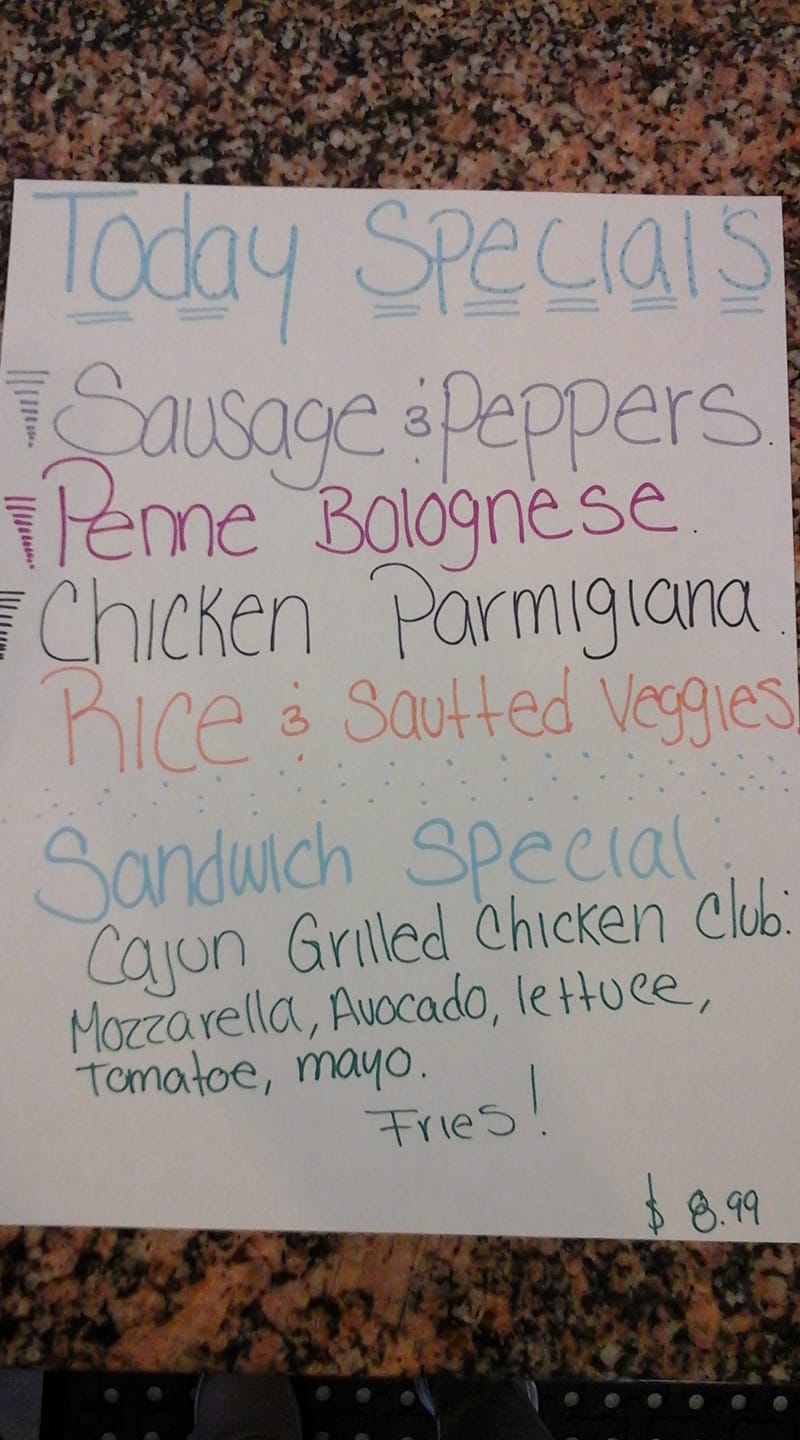 Today Specials
Sausage & Peppers.
Penne Bolognese.
Chicken Parmigiana.
Rice & Sautted Veggies.
Sandwich Special:
Cajun Grilled Chicken Club:
Mozzarella, Avocado, lettuce,
Tomatoe, mayo.
Fries!
$ 8.99